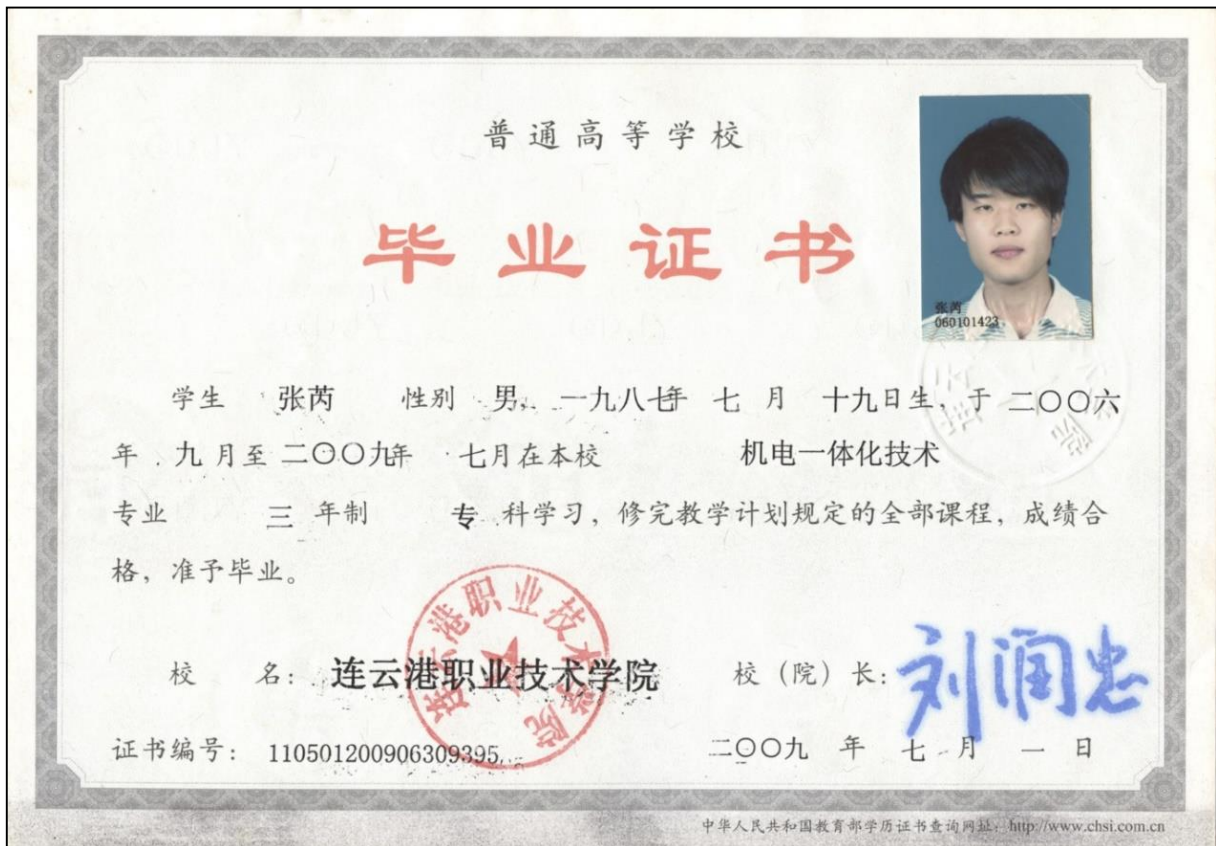 普通高等学校
毕业证书
张芮
060101423
学生 张芮 性别 男, 一九八七年 七 月 十九日生, 于 二〇〇六
年 九 月至 二〇〇九年 七月在本校 机电一体化技术
专业 三 年制 专 科学习, 修完教学计划规定的全部课程, 成绩合
格, 准予毕业。
连云港职业技术学院
校 名: 连云港职业技术学院 校 (院) 长: 刘润忠
证书编号: 110501200906309395 二〇〇九 年 七 月 一 日
中华人民共和国教育部学历证书查询网址: http://www.chsi.com.cn